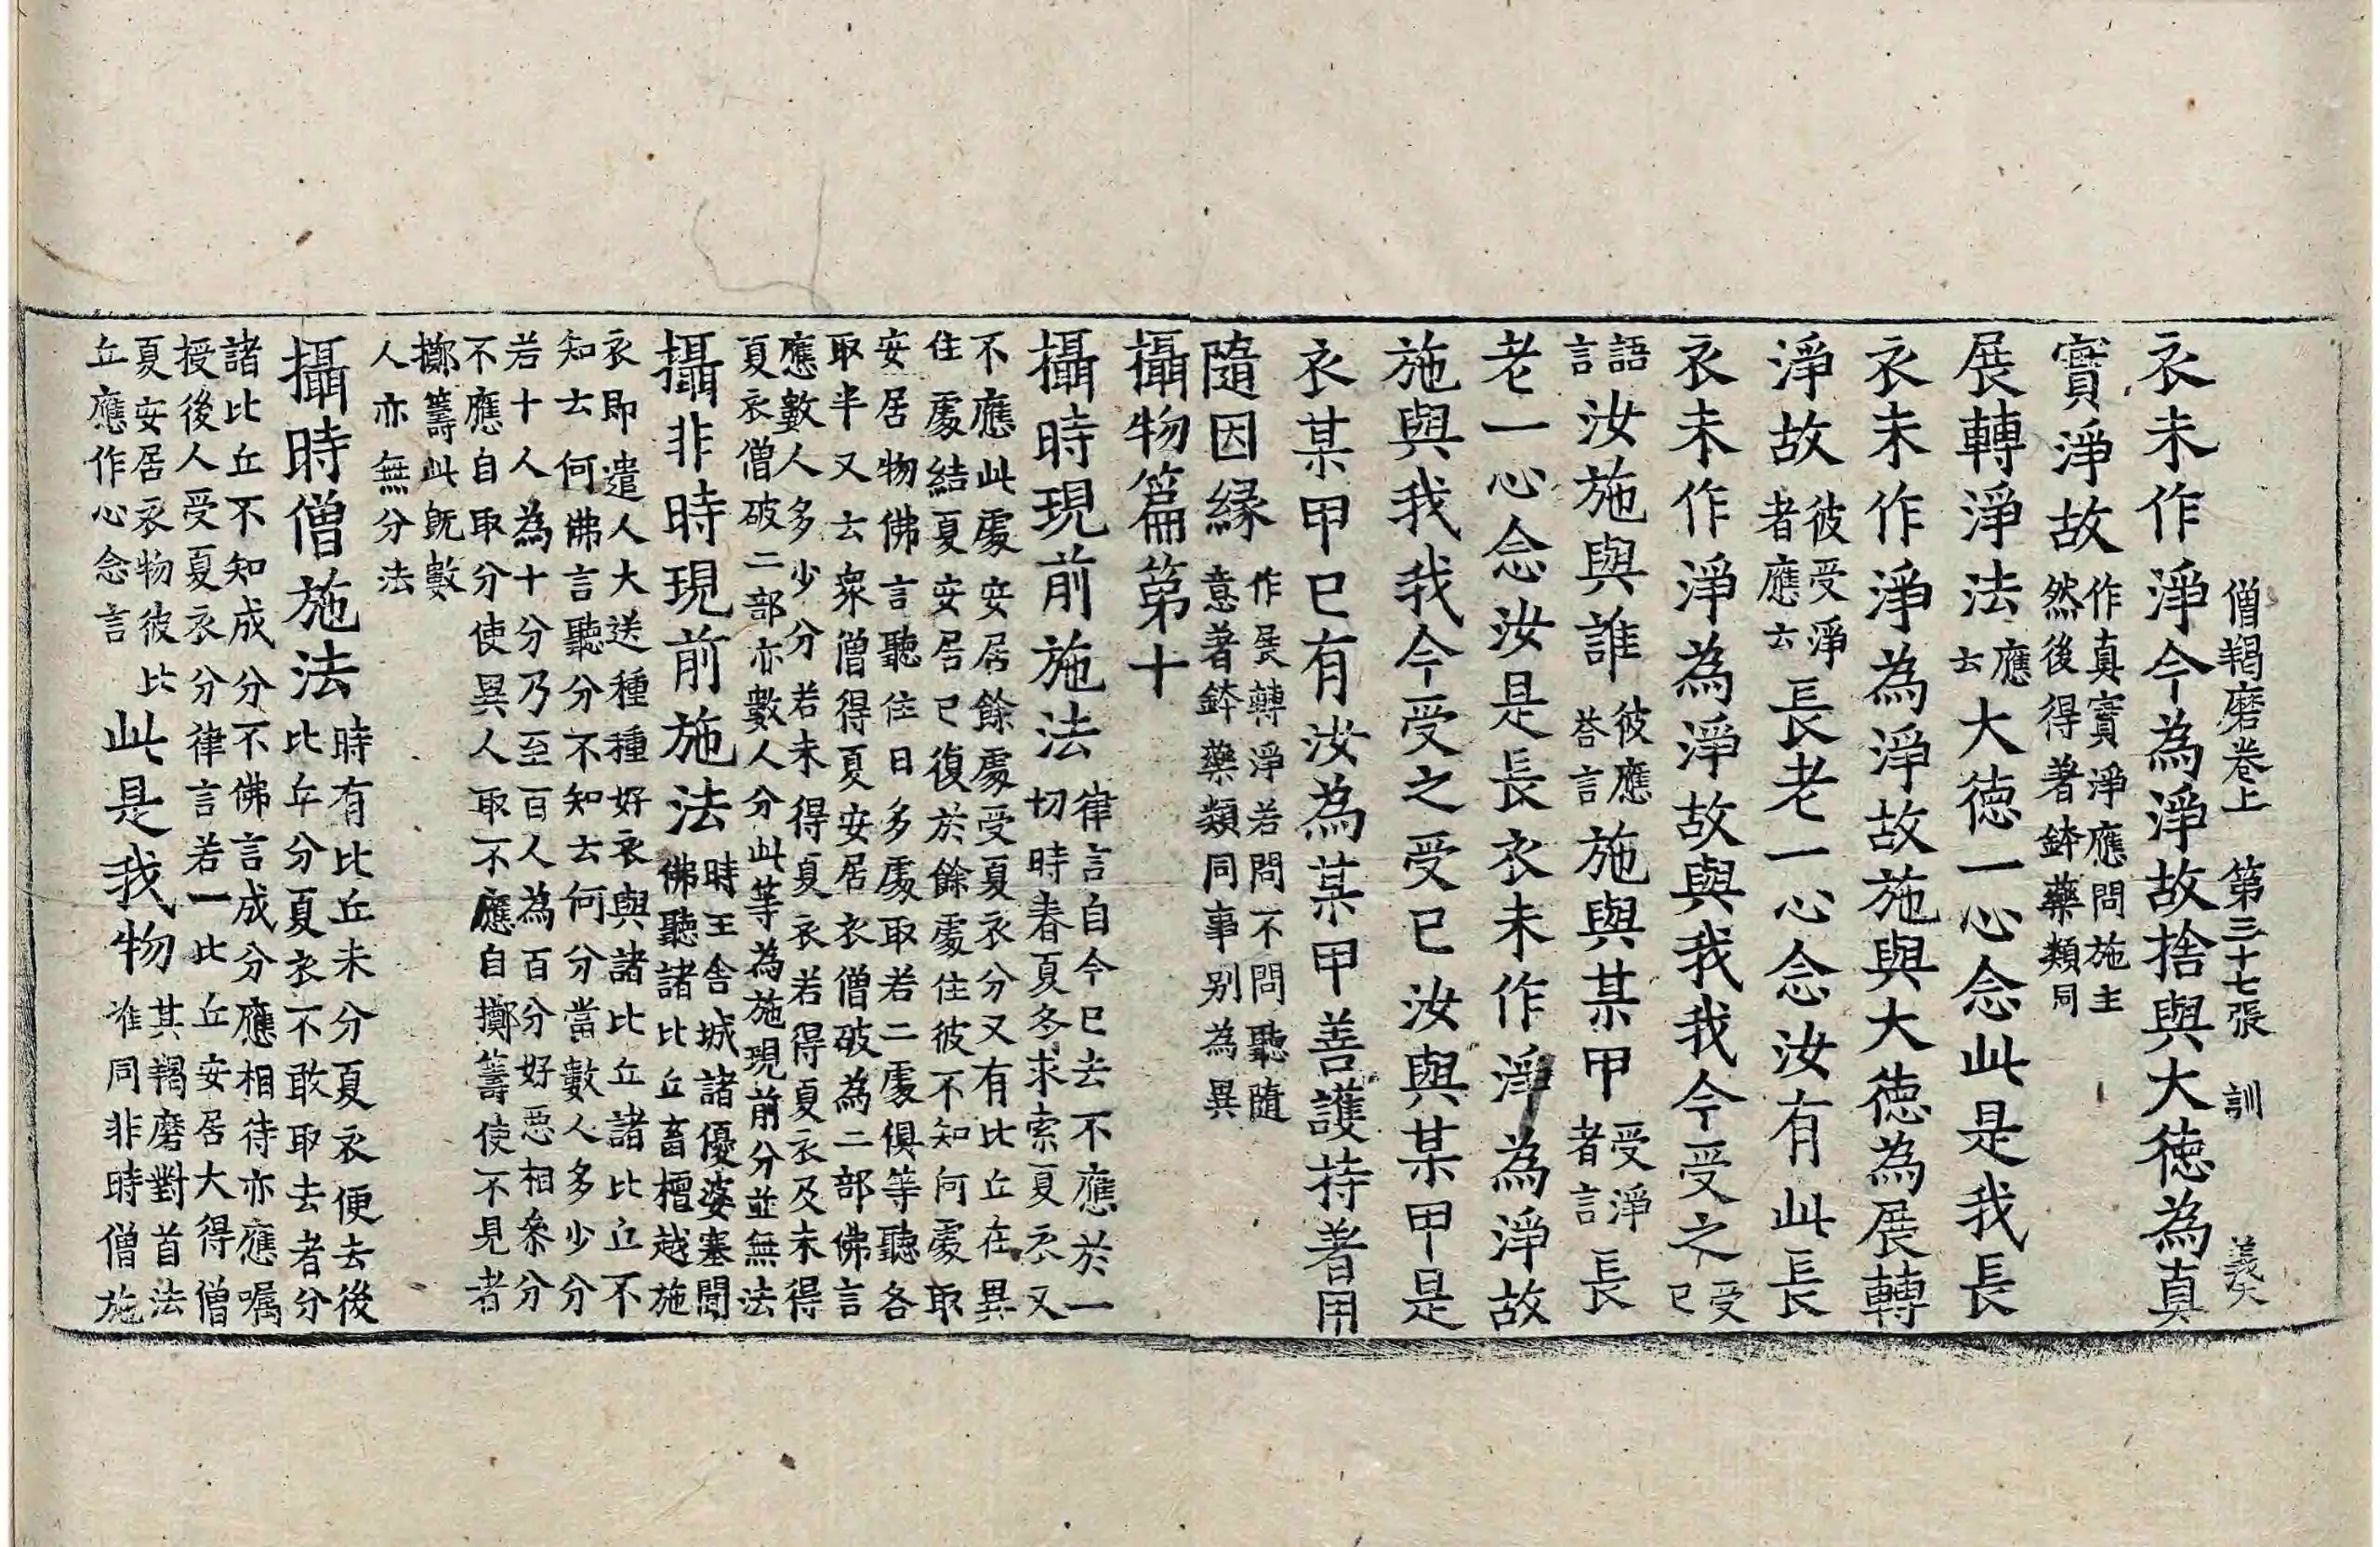 僧羯磨卷上　第三十七張　訓　義矣
衣未作淨今為淨故捨與大德為真
實淨故作真實淨應問施主然後得著鉢藥類同
展轉淨法應云大德一心念此是我長
衣未作淨為淨故施與大德為展轉
淨故彼受淨者應云長老一心念汝有此長
衣未作淨為淨故與我我今受之受已
語言汝施與誰彼應荅言施與某甲受淨者言長
老一心念汝是長衣未作淨為淨故
施與我我今受之受已汝與某甲是
衣某甲已有汝為某甲善護持著用
隨因緣作展轉淨若問不問聽隨意著鉢藥類同事別為異
攝物篇第十
攝時現前施法律言自今已去不應於一切時春夏冬求索夏衣又
不應此處安居餘處受夏衣分又有比丘在異
住處結夏安居已復於餘處住彼不知何處取
安居物佛言聽住日多處取若二處俱等聽各
取半又云眾僧得夏安居衣僧破為二部佛言
應數人多少分若未得夏衣若得夏衣及未得
夏衣僧破二部亦數人分此等為施現前分並無法
攝非時現前施法時王舍城諸優婆塞聞佛聽諸比丘畜檀越施
衣即遣人大送種種好衣與諸比丘諸比丘不
知云何佛言聽分不知云何分當數人多少分
若十人為十分乃至百人為百分好惡相參分
不應自取分使異人取不應自擲籌使不見者
擲籌此既數
人亦無分法
攝時僧施法時有比丘未分夏衣便去後比丘分夏衣不敢取去者分
諸比丘不知成分不佛言成分應相待亦應囑
授後人受夏衣分律言若一比丘安居大得僧
夏安居衣物彼比丘應作心念言此是我物其羯磨對首法准同非時僧施